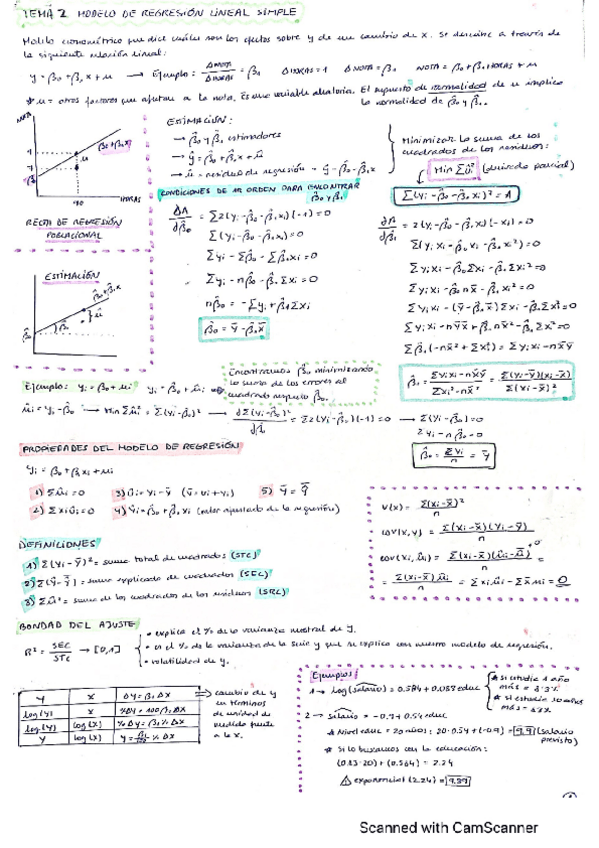 TEMA 2 MODELO DE REGRESIÓN LINEAL SIMPLE
Modelo econométrico que dice cuáles son los efectos sobre y de un cambio de x. Se describe a través de
la siguiente relación lineal:
y = β₀ + β₁x + u → Ejemplo: ΔNOTA/ΔHORAS = β₁ ΔHORAS = 1 ΔNOTA = β₁ NOTA = β₀ + β₁HORAS + u
* u = otros factores que afectan a la nota. Es una variable aleatoria. El supuesto de normalidad de u implica
la normalidad de β̂₀ y β̂₁.
NOTA
β₀ + β₁x
u
β₀
HORAS
RECTA DE REGRESIÓN
POBLACIONAL
ESTIMACIÓN:
→ β̂₀ y β̂₁ estimadores
→ ŷ = β̂₀ + β̂₁x + û
→ û = residuo de regresión = y - β̂₀ - β̂₁x
Minimizar la suma de los
cuadrados de los residuos:
Min Σûᵢ² (derivada parcial)
Σ(yᵢ - β̂₀ - β̂₁xᵢ)² = A
CONDICIONES DE 1er ORDEN PARA ENCONTRAR
β̂₀ y β̂₁
ΔA/dβ̂₀ = Σ2(yᵢ - β̂₀ - β̂₁xᵢ)(-1) = 0
Σ(yᵢ - β̂₀ - β̂₁xᵢ) = 0
Σyᵢ - Σβ̂₀ - Σβ̂₁xᵢ = 0
Σyᵢ - nβ̂₀ - β̂₁Σxᵢ = 0
nβ̂₀ = -Σyᵢ + β̂₁Σxᵢ
β̂₀ = ȳ - β̂₁x̄
ΔA/dβ̂₁ = 2(yᵢ - β̂₀ - β̂₁xᵢ)(-xᵢ) = 0
Σ(yᵢxᵢ - β̂₀xᵢ - β̂₁xᵢ²) = 0
Σyᵢxᵢ - β̂₀Σxᵢ - β̂₁Σxᵢ² = 0
Σyᵢxᵢ - β̂₀nx̄ - β̂₁xᵢ² = 0
Σyᵢxᵢ - (ȳ - β̂₁x̄)Σxᵢ - β̂₁Σxᵢ² = 0
Σyᵢxᵢ - nȳx̄ + β̂₁nx̄² - β̂₁Σxᵢ² = 0
Σβ̂₁(-nx̄² + Σxᵢ²) = Σyᵢxᵢ - nx̄ȳ
β̂₁ = Σyᵢxᵢ - nx̄ȳ / Σxᵢ² - nx̄² = Σ(yᵢ-ȳ)(xᵢ-x̄) / Σ(xᵢ-x̄)²
ESTIMACIÓN
β̂₀ + β̂₁x
β̂₀
Ejemplo: yᵢ = β₀ + uᵢ yᵢ = β̂₀ + ûᵢ
Encontramos β̂₀ minimizando
la suma de los errores al
cuadrado respecto β̂₀.
ûᵢ = yᵢ - β̂₀ → Min Σûᵢ² = Σ(yᵢ - β̂₀)² → dΣ(yᵢ - β̂₀)²/dβ̂₀ = Σ2(yᵢ - β̂₀)(-1) = 0 → Σ(yᵢ - β̂₀) = 0
Σyᵢ - nβ̂₀ = 0
β̂₀ = Σyᵢ/n = ȳ
PROPIEDADES DEL MODELO DE REGRESIÓN
yᵢ = β₀ + β₁xᵢ + uᵢ
1) Σûᵢ = 0 5) ȳ = ŷ̄
2) Σxᵢûᵢ = 0 4) ŷᵢ = β̂₀ + β̂₁xᵢ (valor ajustado de la regresión)
V(x) = Σ(xᵢ-x̄)²/n
cov(x,y) = Σ(xᵢ-x̄)(yᵢ-ȳ)/n
cov(xᵢ,ûᵢ) = Σ(xᵢ-x̄)(ûᵢ-û̄)/n
= Σ(xᵢ-x̄)ûᵢ/n = Σxᵢûᵢ - Σx̄ûᵢ = 0
DEFINICIONES
1) Σ(yᵢ-ȳ)² = suma total de cuadrados (STC)
2) Σ(ŷ-ȳ)² = suma explicada de cuadrados (SEC)
3) Σû² = suma de los cuadrados de los residuos (SRC)
BONDAD DEL AJUSTE
R² = SEC/STC → [0,1]
• explica el % de la varianza muestral de y.
• es el % de la varianza de la serie y que se explica con nuestro modelo de regresión.
• volatilidad de y.
y x Δy = β₁Δx
log(y) x %Δy = 100β₁Δx
log(y) log(x) %Δy = β₁%Δx
y log(x) y = β₁/100 · %Δx
cambio de y
en términos
de unidad de
medida frente
a la x.
Ejemplos:
1 → log(salario) = 0.584 + 0.083educ
* si estudia 1 año
más = 8'3%
* si estudia 10 años
más = 83%
2 → salario = -0.9 + 0.54educ
* Nivel educ = 20 años: 20·0.54 + (-0.9) = 9.9 (salario
previsto)
* Si lo buscamos con la educación:
(0.83·20) + (0.584) = 2.24
exponencial (2.24) = 9.39
Scanned with CamScanner